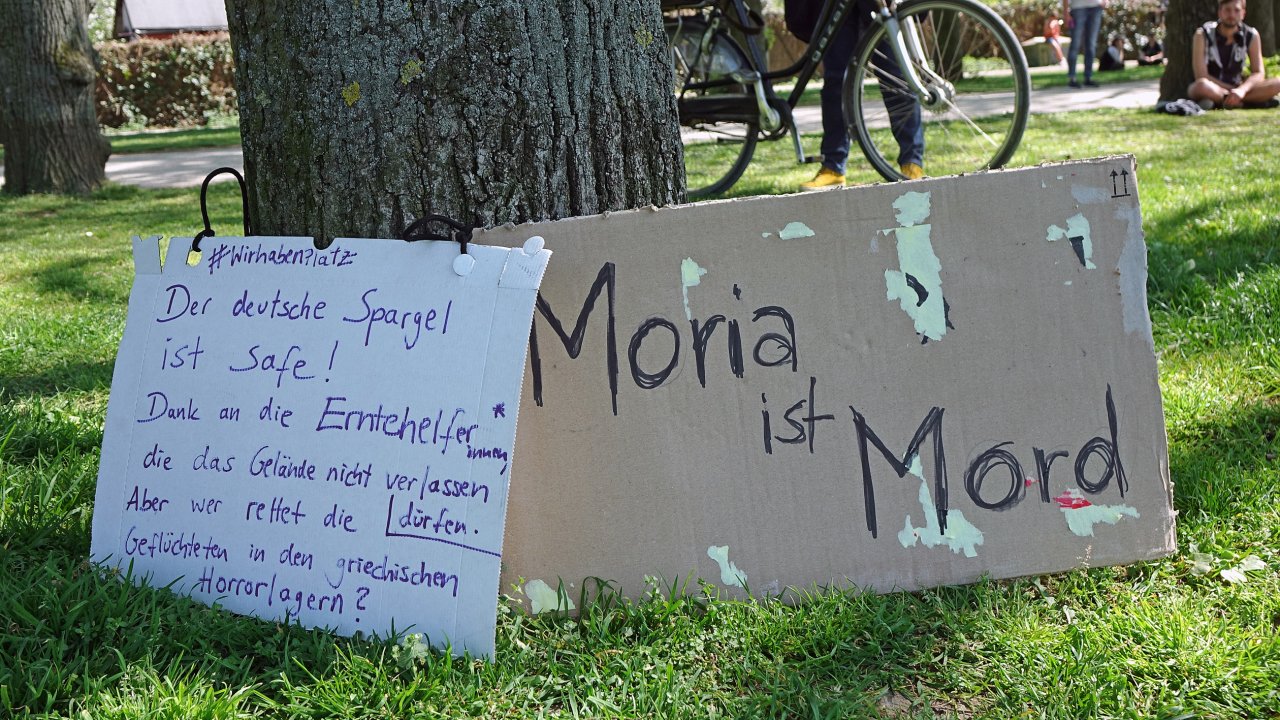 #WirhabenPlatz
Der deutsche Spargel
ist safe!
Dank an die Erntehelfer*
innen
die das Gelände nicht verlassen
dürfen.
Aber wer rettet die
Geflüchteten in den griechischen
Horrorlagern?
Moria
ist
Mord